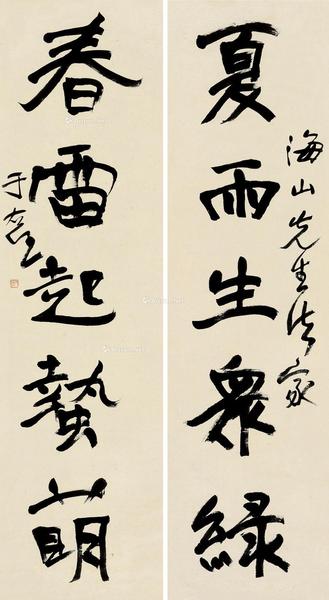 夏雨生眾綠
海山先生法家
春雷起蟄萌
于右任